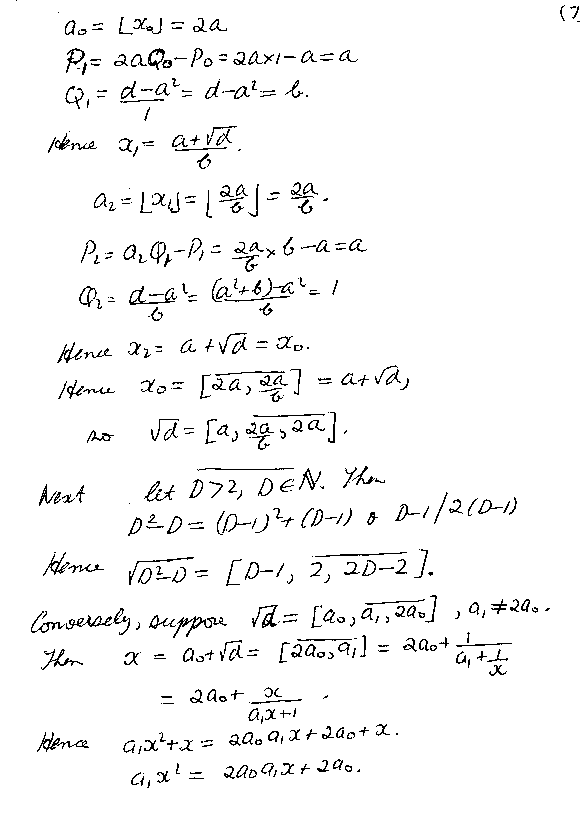 (7
a₀ = ⌊x₀⌋ = 2a
P₁ = 2aQ₀ - P₀ = 2a×1 - a = a
Q₁ = (d-a²)/1 = d-a² = b.
Hence x₁ = (a+√d)/b.
a₂ = ⌊x₁⌋ = ⌊2a/b⌋ = 2a/b.
P₂ = a₂Q₁ - P₁ = 2a/b × b - a = a
Q₂ = (d-a²)/b = ((a²+b)-a²)/b = 1
Hence x₂ = a + √d = x₀.
Hence x₀ = [\overline{2a, 2a/b}] = a+√d,
so √d = [a, \overline{2a/b, 2a}].
Next let D>2, D∈ℕ. Then
D²-D = (D-1)² + (D-1) & D-1/2(D-1)
Hence √(D²-D) = [D-1, \overline{2, 2D-2}].
Conversely, suppose √d = [a₀, \overline{a₁, 2a₀}], a₁≠2a₀.
Then x = a₀+√d = [\overline{2a₀, a₁}] = 2a₀ + 1/(a₁ + 1/x)
= 2a₀ + x/(a₁x+1).
Hence a₁x² + x = 2a₀a₁x + 2a₀ + x.
a₁x² = 2a₀a₁x + 2a₀.